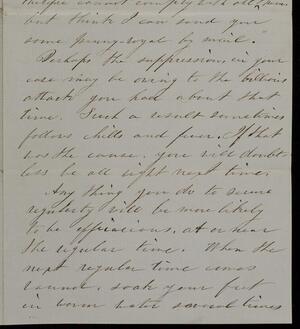 therefore cannot comply with all
but think I can send you
some penny-royal by mail."
Perhaps the suppression, in your
case may be owing to the billious
attack you had about that
time. Such a result sometimes
follows chills and fever. If that
was the cause, you will doubt-
less be all right next time.
Any thing you do to secure
regularity will be more likely
to be efficacious, at or near
the regular time. When the
next regular time comes
round, soak your feet
in warm water several times